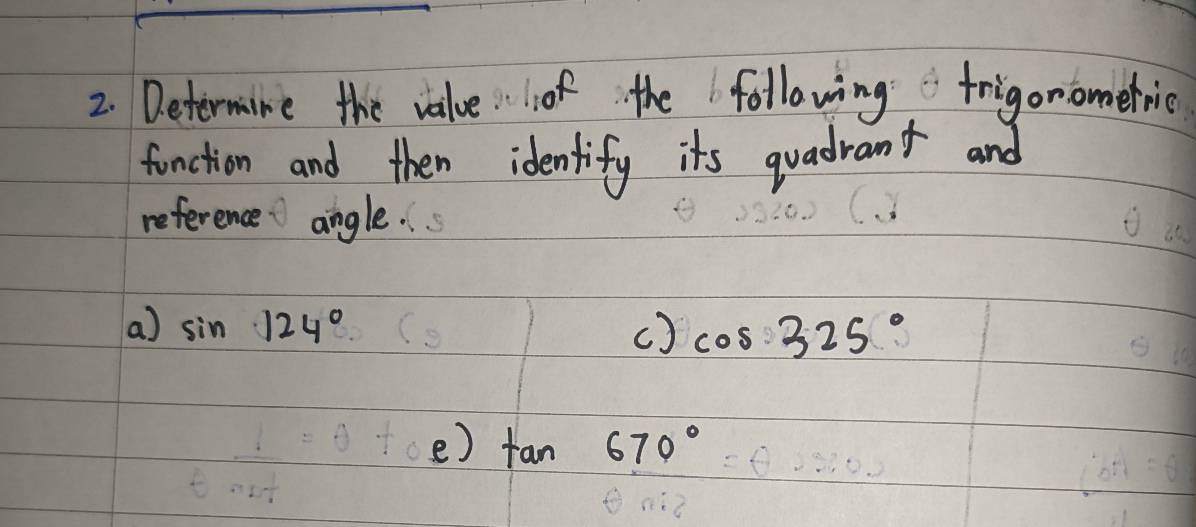 2. Determine the value of the following trigonometric
function and then identify its quadrant and
reference angle.
a) sin 124° c) cos 325°
e) tan 670°